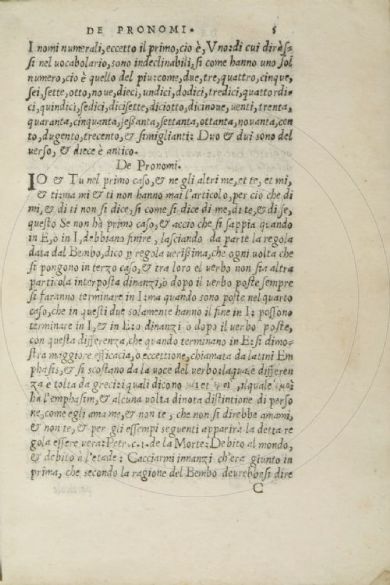 DE PRONOMI. 5
I nomi numerali, eccetto il primo, cio è, Vno: di cui dirasſ-
ſi nel vocabolario, sono indeclinabili, ſi come hanno uno ſol
numero, cio è quello del piu: come, due, tre, quattro, cinque,
ſei, ſette, otto, noue, dieci, undici, dodici, tredici, quattordi-
ci, quindici, ſedici, diciſette, diciotto, dicinoue, uenti, trenta,
quaranta, cinquanta, ſeſſanta, ſettanta, ottanta, nouanta, cen
to, dugento, trecento, & ſimiglianti: Duo & dui sono del
uerſo, & diece è antico.
De Pronomi.
IO & Tu nel primo caſo, & ne gli altri me, et te, et mi,
& ti: ma mi & ti non hanno mai l'articolo, per ciò che di
mi, & di ti non ſi dice, ſi come ſi dice di me, di te, & di ſe,
queſto Se non hà primo caſo, & accio che ſi ſappia quando
in E, ò in I, debbiano finire, laſciando da parte la regola
data dal Bembo, dico p regola ueriſſima, che ogni uolta che
ſi pongono in terzo caſo, & tra loro el uerbo non ſia altra
particola interpoſta dinanzi, ò dopo il uerbo poſte ſempre
ſi faranno terminare in I: ma quando sono poſte nel quarto
caſo, che in queſti due ſolamente hanno il fine in I: poſſono
terminare in I, & in E: ò dinanzi ò dopo il uerbo poſte,
con queſta differenza, che quando terminano in E: ſi dimo-
ſtra maggiore efficacia, o eccettione, chiamata da latini Em
phaſis, & ſi scoſtano da la uoce del uerbo: laquale differen
za e tolta da greci: i quali dicono ilquale
ha l'emphaſim, & alcuna uolta dinota diſtintione di perſo
ne, come egli ama me, & non te, che non ſi direbbe amami,
& non te, & per gli eſſempi ſeguenti apparirà la detta re
gola eſſere uera: Petr. c. 1. de la Morte: Debito al mondo,
& debito à l'etade: Cacciarmi innanzi ch'era giunto in
prima, che ſecondo la ragione del Bembo deurebbeſi dire
C